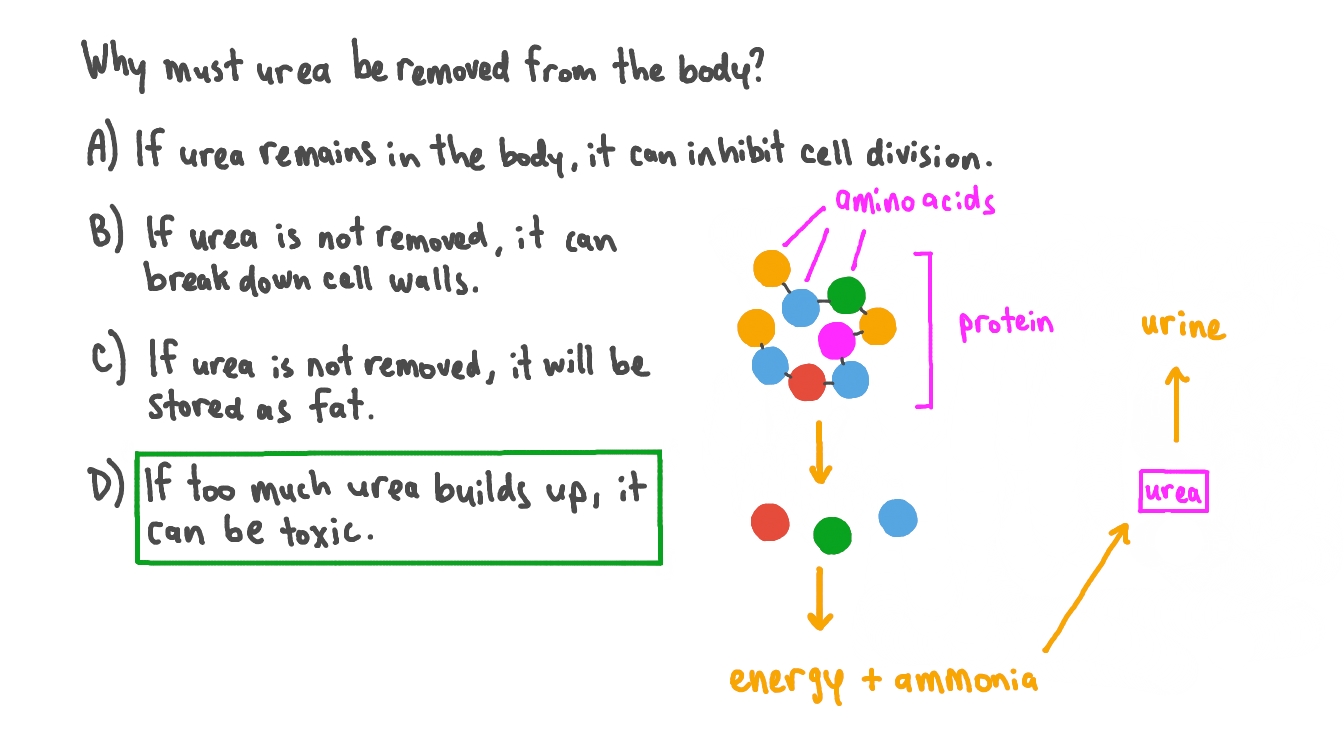 Why must urea be removed from the body?
A) If urea remains in the body, it can inhibit cell division.
B) If urea is not removed, it can
break down cell walls.
C) If urea is not removed, it will be
stored as fat.
D) If too much urea builds up, it
can be toxic.
amino acids
protein
urine
urea
energy + ammonia